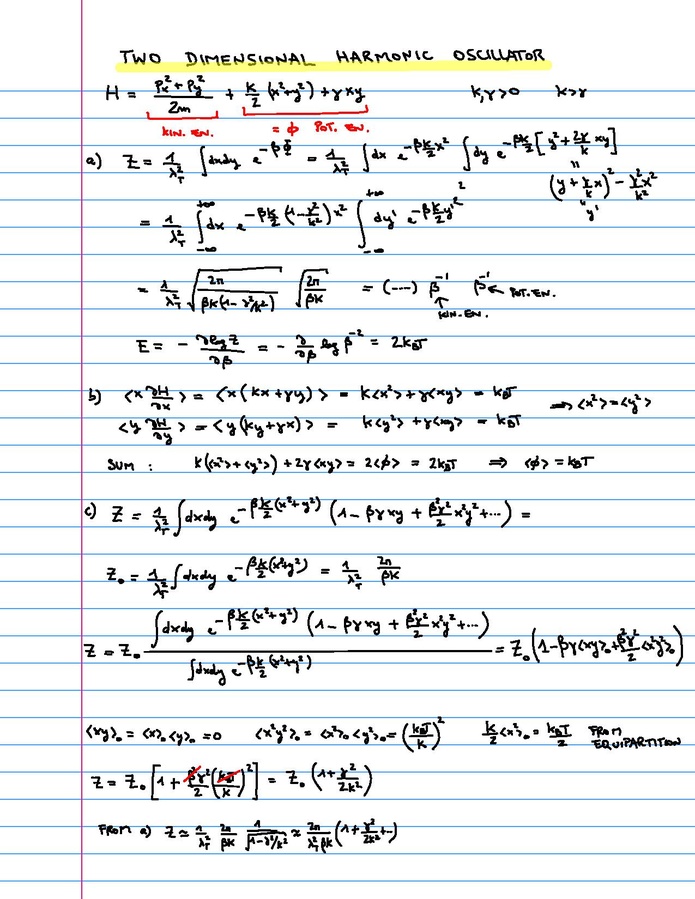 TWO DIMENSIONAL HARMONIC OSCILLATOR
H = (Px² + Py²)/2m + k/2 (x²+y²) + γxy    k,γ>0    k>γ
KIN. EN.    = ϕ POT. EN.
a) Z = 1/λ_T² ∫dxdy e^{-βΦ} = 1/λ_T² ∫dx e^{-βk/2 x²} ∫dy e^{-βk/2 [y² + 2γ/k xy]}
" (y + γ/k x)² - γ²/k² x²
" y'
= 1/λ_T² ∫_{-∞}^{+∞} dx e^{-βk/2 (1-γ²/k²) x²} ∫_{-∞}^{+∞} dy' e^{-βk/2 y'²}
= 1/λ_T² √(2π/(βk(1-γ²/k²))) √(2π/βk) = (---) β⁻¹ β⁻¹ ← POT. EN.
↑ KIN. EN.
E = - ∂logZ/∂β = - ∂/∂β log β⁻² = 2k_BT
b) <x ∂H/∂x> = <x(kx+γy)> = k<x²> + γ<xy> = k_BT    ⇒ <x²> = <y²>
<y ∂H/∂y> = <y(ky+γx)> = k<y²> + γ<xy> = k_BT
SUM : k(<x²>+<y²>) + 2γ<xy> = 2<ϕ> = 2k_BT ⇒ <ϕ> = k_BT
c) Z = 1/λ_T² ∫dxdy e^{-βk/2 (x²+y²)} (1 - βγxy + β²γ²/2 x²y² + ...) =
Z₀ = 1/λ_T² ∫dxdy e^{-βk/2 (x²+y²)} = 1/λ_T² 2π/βk
Z = Z₀ ∫dxdy e^{-βk/2 (x²+y²)} (1 - βγxy + β²γ²/2 x²y² + ...) / ∫dxdy e^{-βk/2 (x²+y²)} = Z₀ (1 - βγ<xy>₀ + β²γ²/2 <x²y²>₀)
<xy>₀ = <x>₀<y>₀ = 0    <x²y²>₀ = <x²>₀<y²>₀ = (k_BT/k)²    k/2 <x²>₀ = k_BT/2 FROM EQUIPARTITION
Z = Z₀ [1 + β²γ²/2 (k_BT/k)²] = Z₀ (1 + γ²/2k²)
FROM a) Z ≃ 1/λ_T² 2π/βk 1/√(1-γ²/k²) ≈ 2π/λ_T²βk (1 + γ²/2k² + ...)